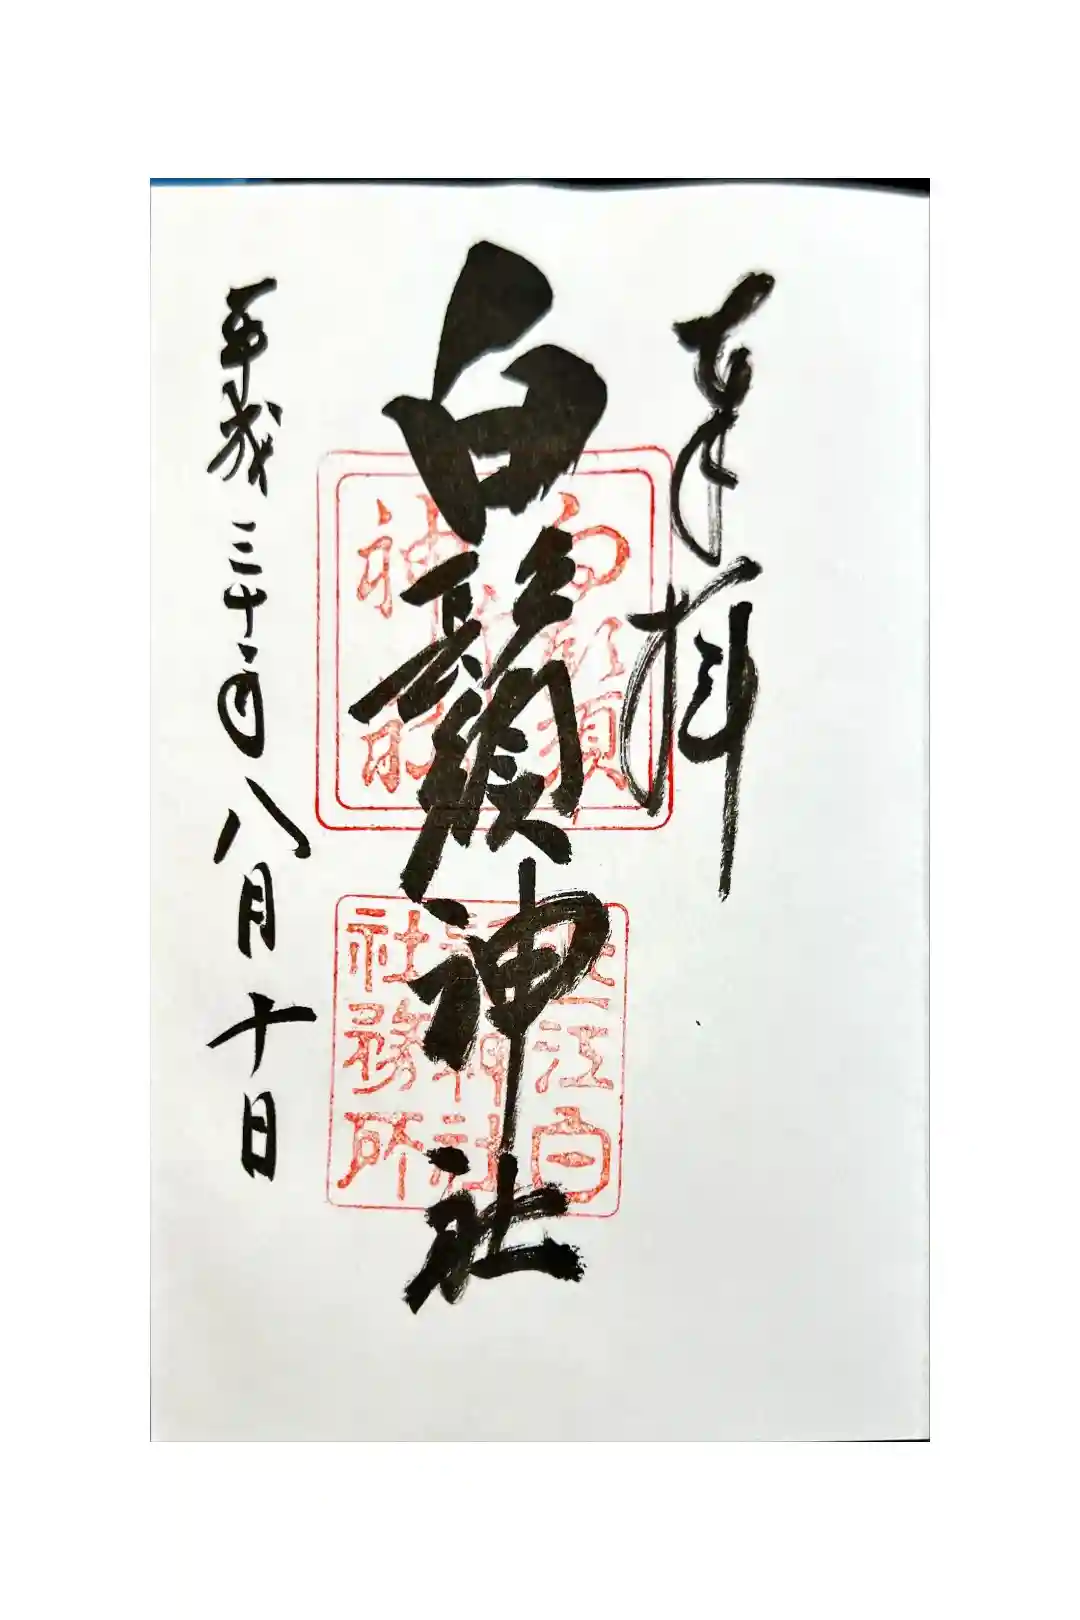 奉拝
白鬚神社
平成三十年八月十日
白鬚
神社
近江白
鬚神社
社務所